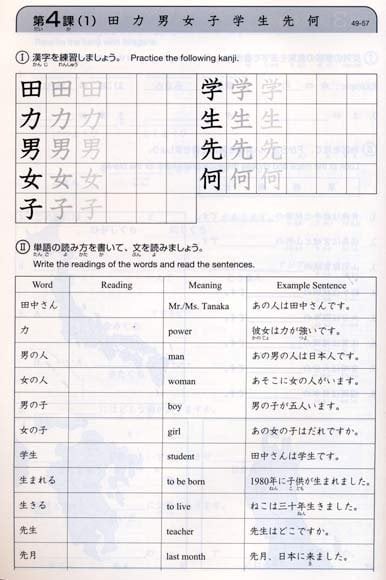 第4課(1) 田 力 男 女 子 学 生 先 何 49-57
だい か
Ⅰ 漢字を練習しましょう。 Practice the following kanji.
かんじ れんしゅう
田 田 田 田 学 学 学 学
力 力 力 力 生 生 生 生
男 男 男 男 先 先 先 先
女 女 女 女 何 何 何 何
子 子 子 子
Ⅱ 単語の読み方を書いて、文を読みましょう。
たんご よ かた か ぶん よ
Write the readings of the words and read the sentences.
Word Reading Meaning Example Sentence
田中さん Mr./Ms. Tanaka あの人は田中さんです。
力 power 彼女は力が強いです。
かのじょ つよ
男の人 man あの男の人は日本人です。
女の人 woman あそこに女の人がいます。
男の子 boy 男の子が五人います。
女の子 girl あの女の子はだれですか。
学生 student 田中さんは学生です。
生まれる to be born 1980年に子供が生まれました。
ねん こども
生きる to live ねこは三十年生きました。
ねん
先生 teacher 先生はどこですか。
先月 last month 先月、日本に来ました。
き